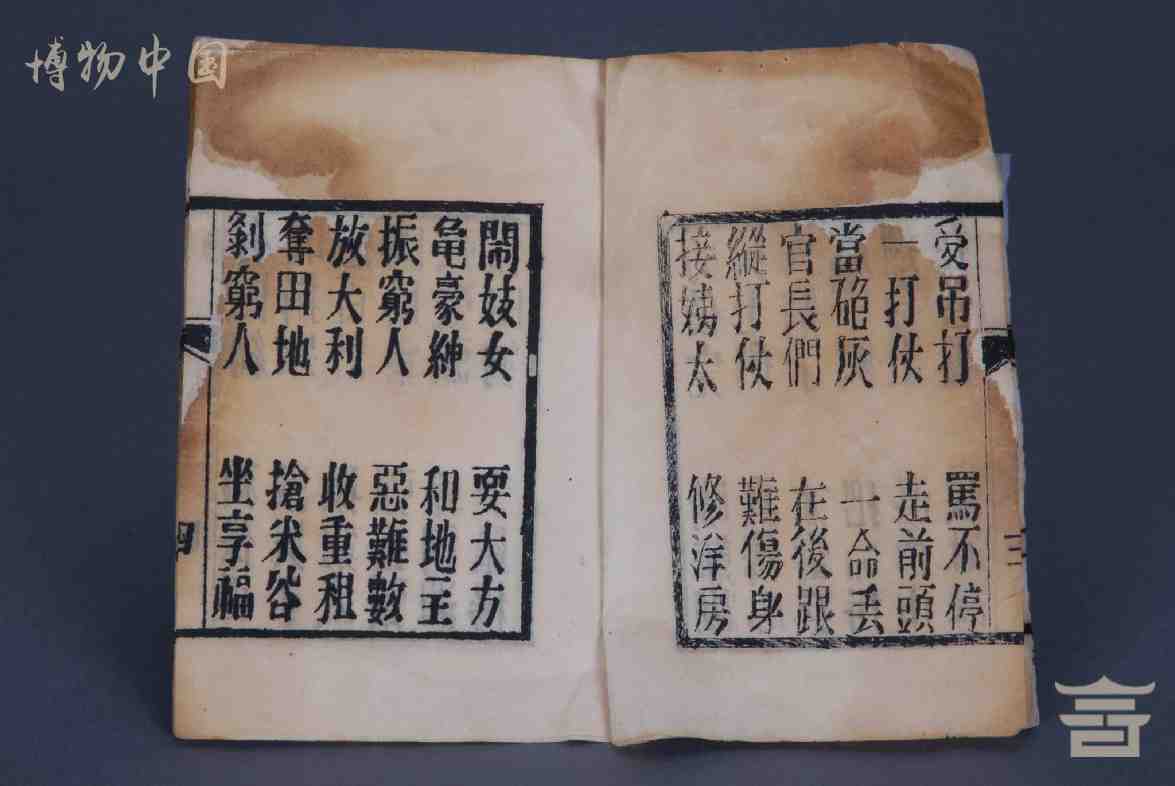 博物中国
受吊打 罵不停
一打仗 走前頭
當砲灰 一命丟
官長們 在後跟
縱打仗 難傷身
接姨太 修洋房
三
閙妓女 耍大方
亀豪紳 和地主
振窮人 惡難數
放大利 收重租
奪田地 搶米谷
剝窮人 坐享福
四